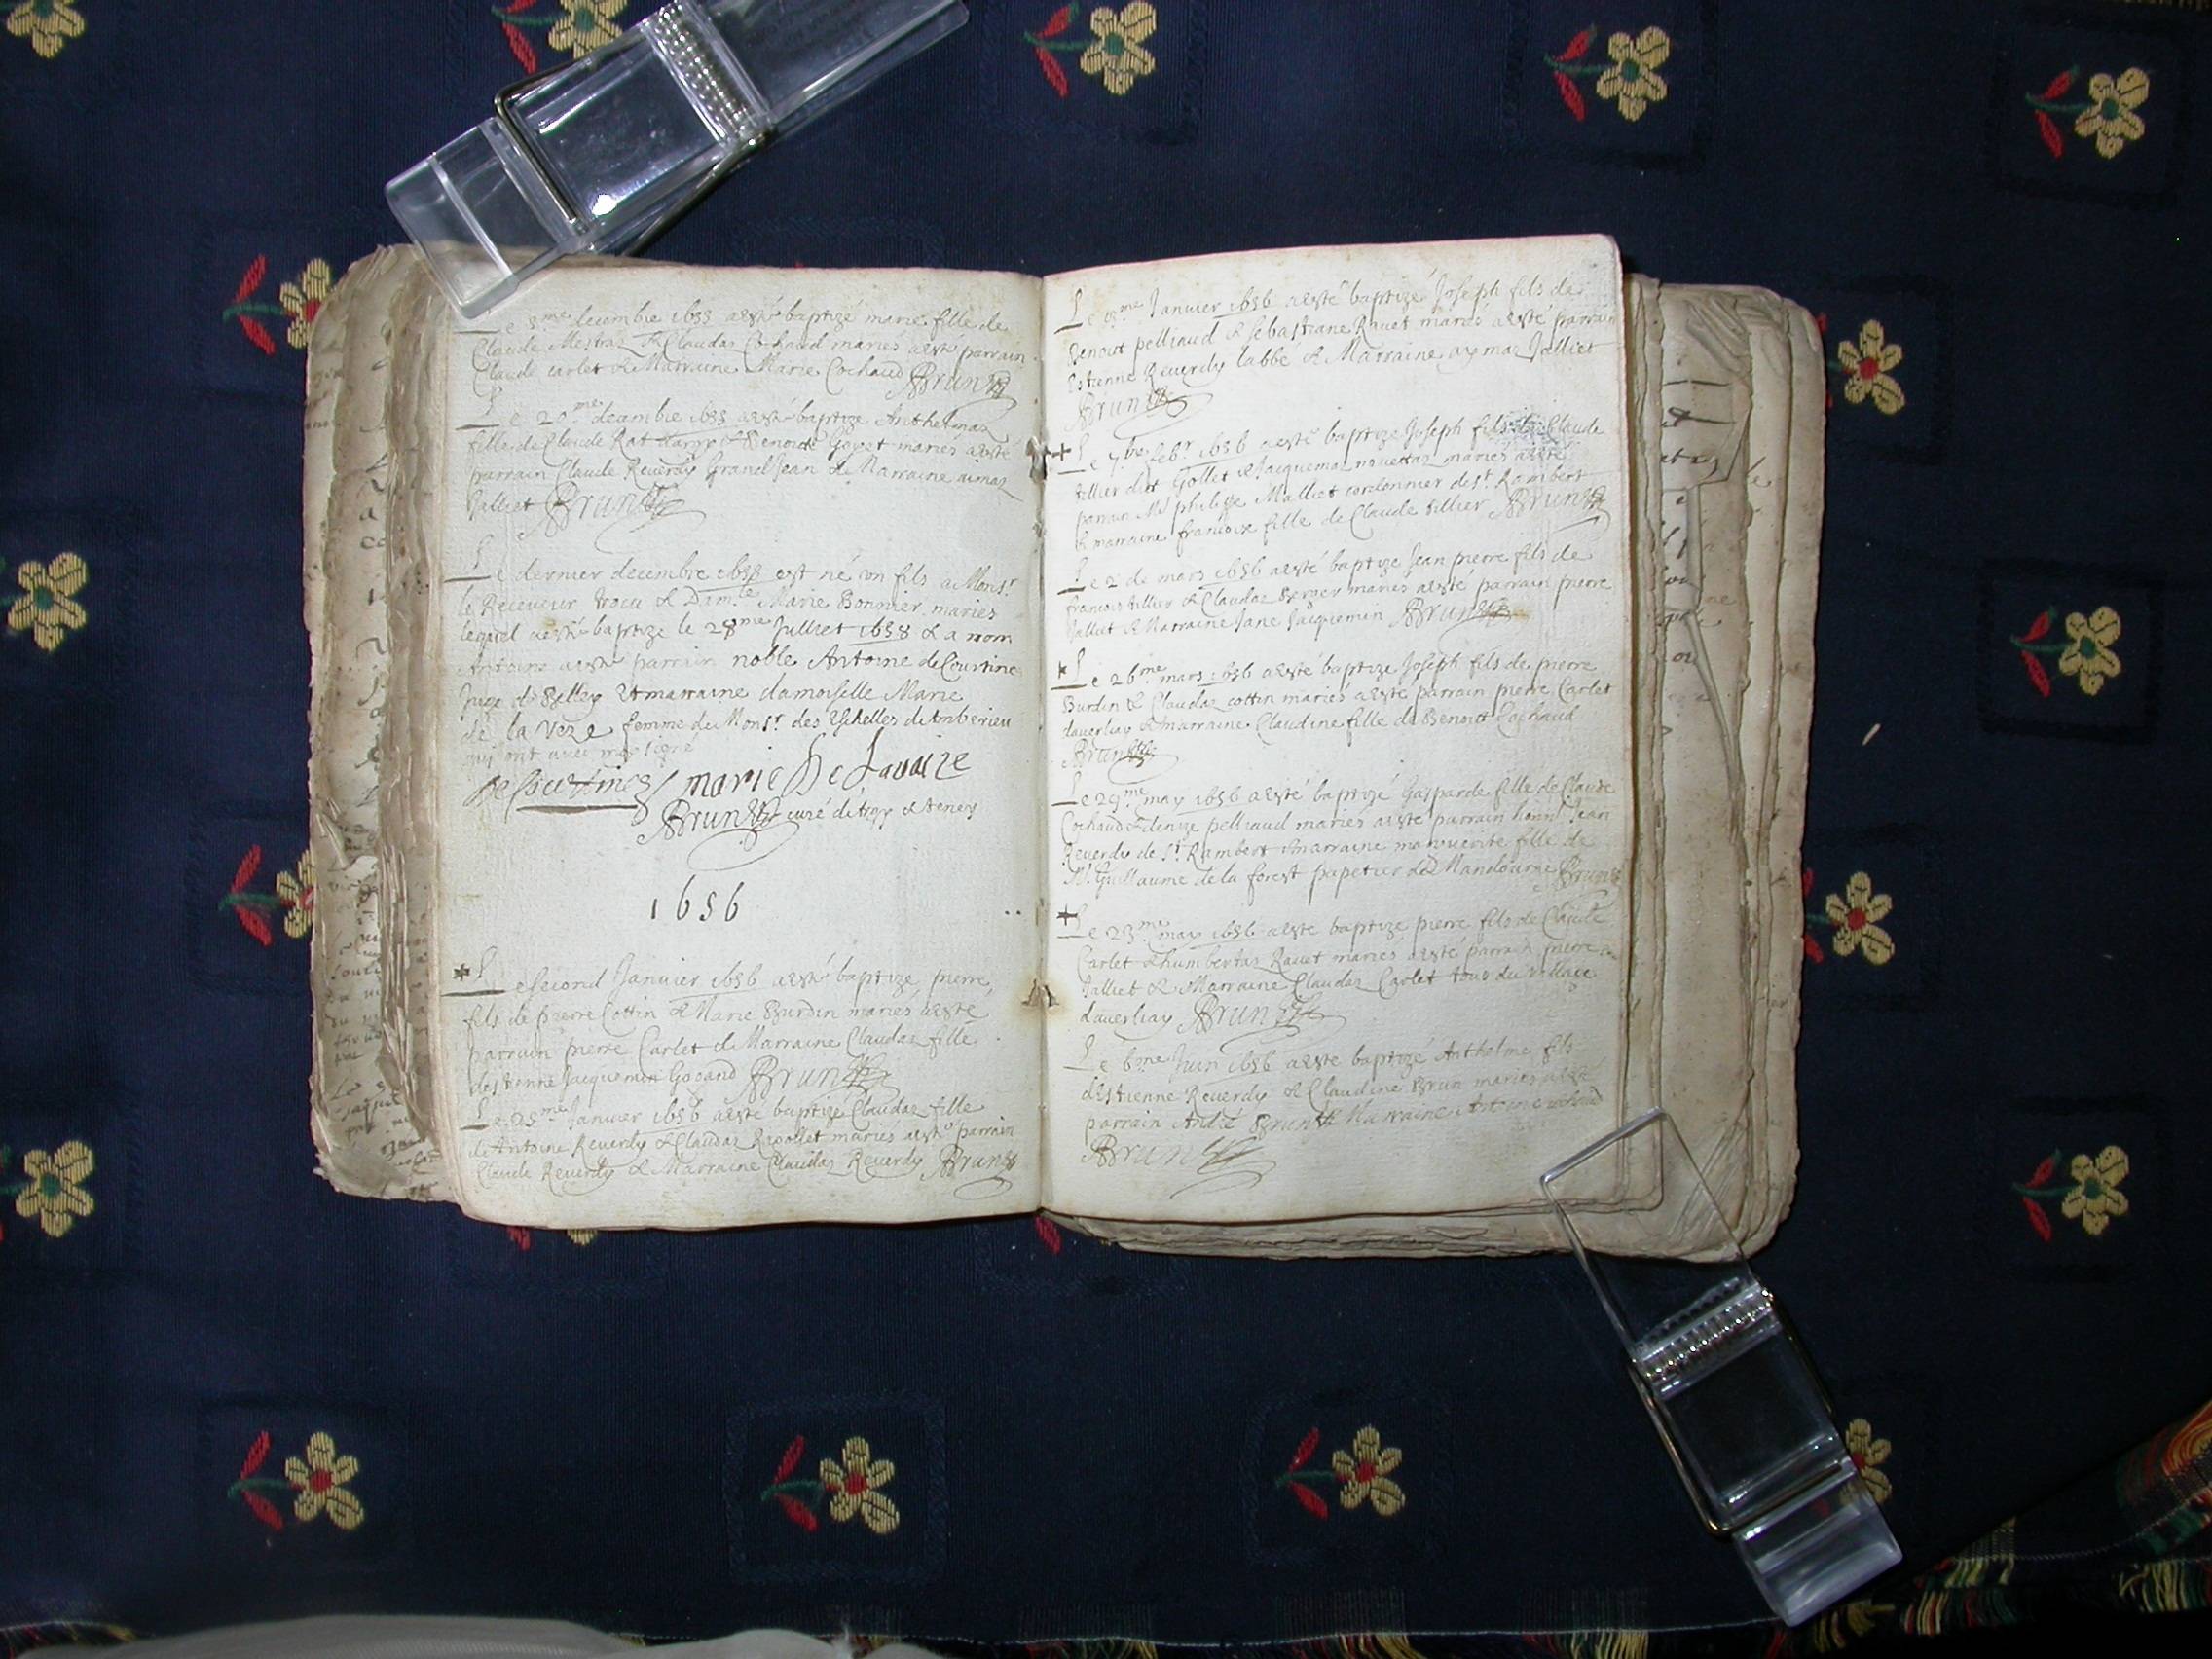 Le 8.me decembre 1655 a esté baptizé marie fille de
Claude Mestraz & Claudaz Cochaud maries a esté parrain
Claude carlet & Marraine Marie Cochaud Brun
Le 20.me decembre 1655 a esté baptize Anthelmaz
fille de Claude Rat & Benoite Goyet maries a esté
parrain Claude Reverdy Grand Jean & Marraine aimaz
Jalliet Brun
Le dernier decembre 1655 est né un fils a Mons.r
le Receveur trocu & Dam.le Marie Bonnier maries
lequel a esté baptize le 28.me Julliet 1658 & a nom
Antoine a esté parrain noble Antoine de Courtine
Juge de Belley & marraine damoiselle Marie
de la Veze femme de Mons.r des Eschelles d'Amberieu
qui ont avec moy signé
De Courtines marie De Lavaize
Brun curé d'
1656
Le second Janvier 1656 a esté baptize pierre
fils de pierre Cottin & Marie Burdin mariés a esté
parrain pierre Carlet & Marraine Claudaz fille
destienne Jacquemin Gocand Brun
Le 25.me Janvier 1656 a esté baptizé Claudaz fille
de Antoine Reverdy & Claudaz Rapollet mariés a esté parrain
Claude Reverdy & Marraine Claudaz Reverdy Brun
Le me Janvier 1656 a esté baptizé Joseph fils de
Benoist pelliaud & sebastiane Ravet mariés a esté parrain
Estienne Reverdy labbé & Marraine aymaz Jalliet
Brun
Le 7. feb.r 1656 a esté baptizé Joseph fils de Claude
tillier dit Gollet & Jacquemaz mariés a esté
parrain M.e philippe Malliet cordonnier de s.t Rambert
& marraine francoise fille de Claude tillier Brun
Le 2 de mars 1656 a esté baptize Jean pierre fils de
francois tillier & Claudaz Berger mariés a esté parrain pierre
Jalliet & Marraine Jane Jacquemin Brun
Le 26.me mars 1656 a esté baptize Joseph fils de pierre
Burdin & Claudaz cottin mariés a esté parrain pierre Carlet
daverliay & marraine Claudine fille de Benoit Cochaud
Brun
Le 29.me may 1656 a esté baptizé Gasparde fille de Claude
Cochaud & denize pelliaud mariés a esté parrain honn. Jean
Reverdy de s.t Rambert & marraine marguerite fille de
M.e Guillaume de la forest papetier de Brun
Le 23.me may 1656 a esté baptize pierre fils de Claude
Carlet & humbertaz Ravet mariés a esté parrain pierre
Jalliet & Marraine Claudaz Carlet tous du village
daverliay Brun
Le 6.me Juin 1656 a esté baptizé Anthelme fils
destienne Reverdy & Claudine Brun mariés a esté
parrain André Brun & Marraine
Brun